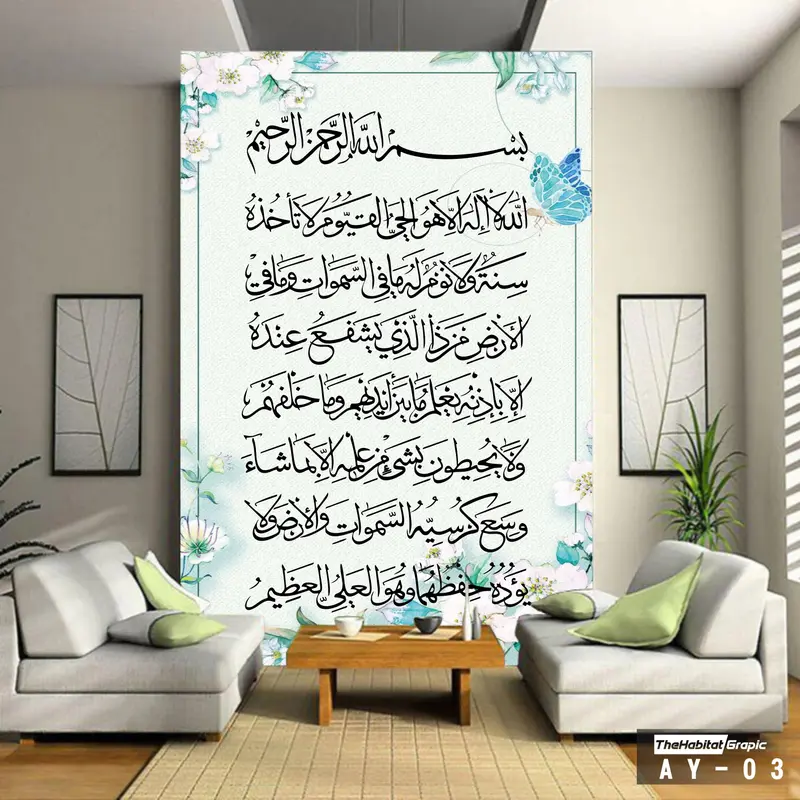 بسم الله الرحمن الرحيم
الله لا إله إلا هو الحي القيوم لا تأخذه
سنة ولا نوم له ما في السموات وما في
الأرض من ذا الذي يشفع عنده
إلا بإذنه يعلم ما بين أيديهم وما خلفهم
ولا يحيطون بشيء من علمه إلا بما شاء
وسع كرسيه السموات والأرض ولا
يؤده حفظهما وهو العلي العظيم
TheHabitat Grapic
AY-03